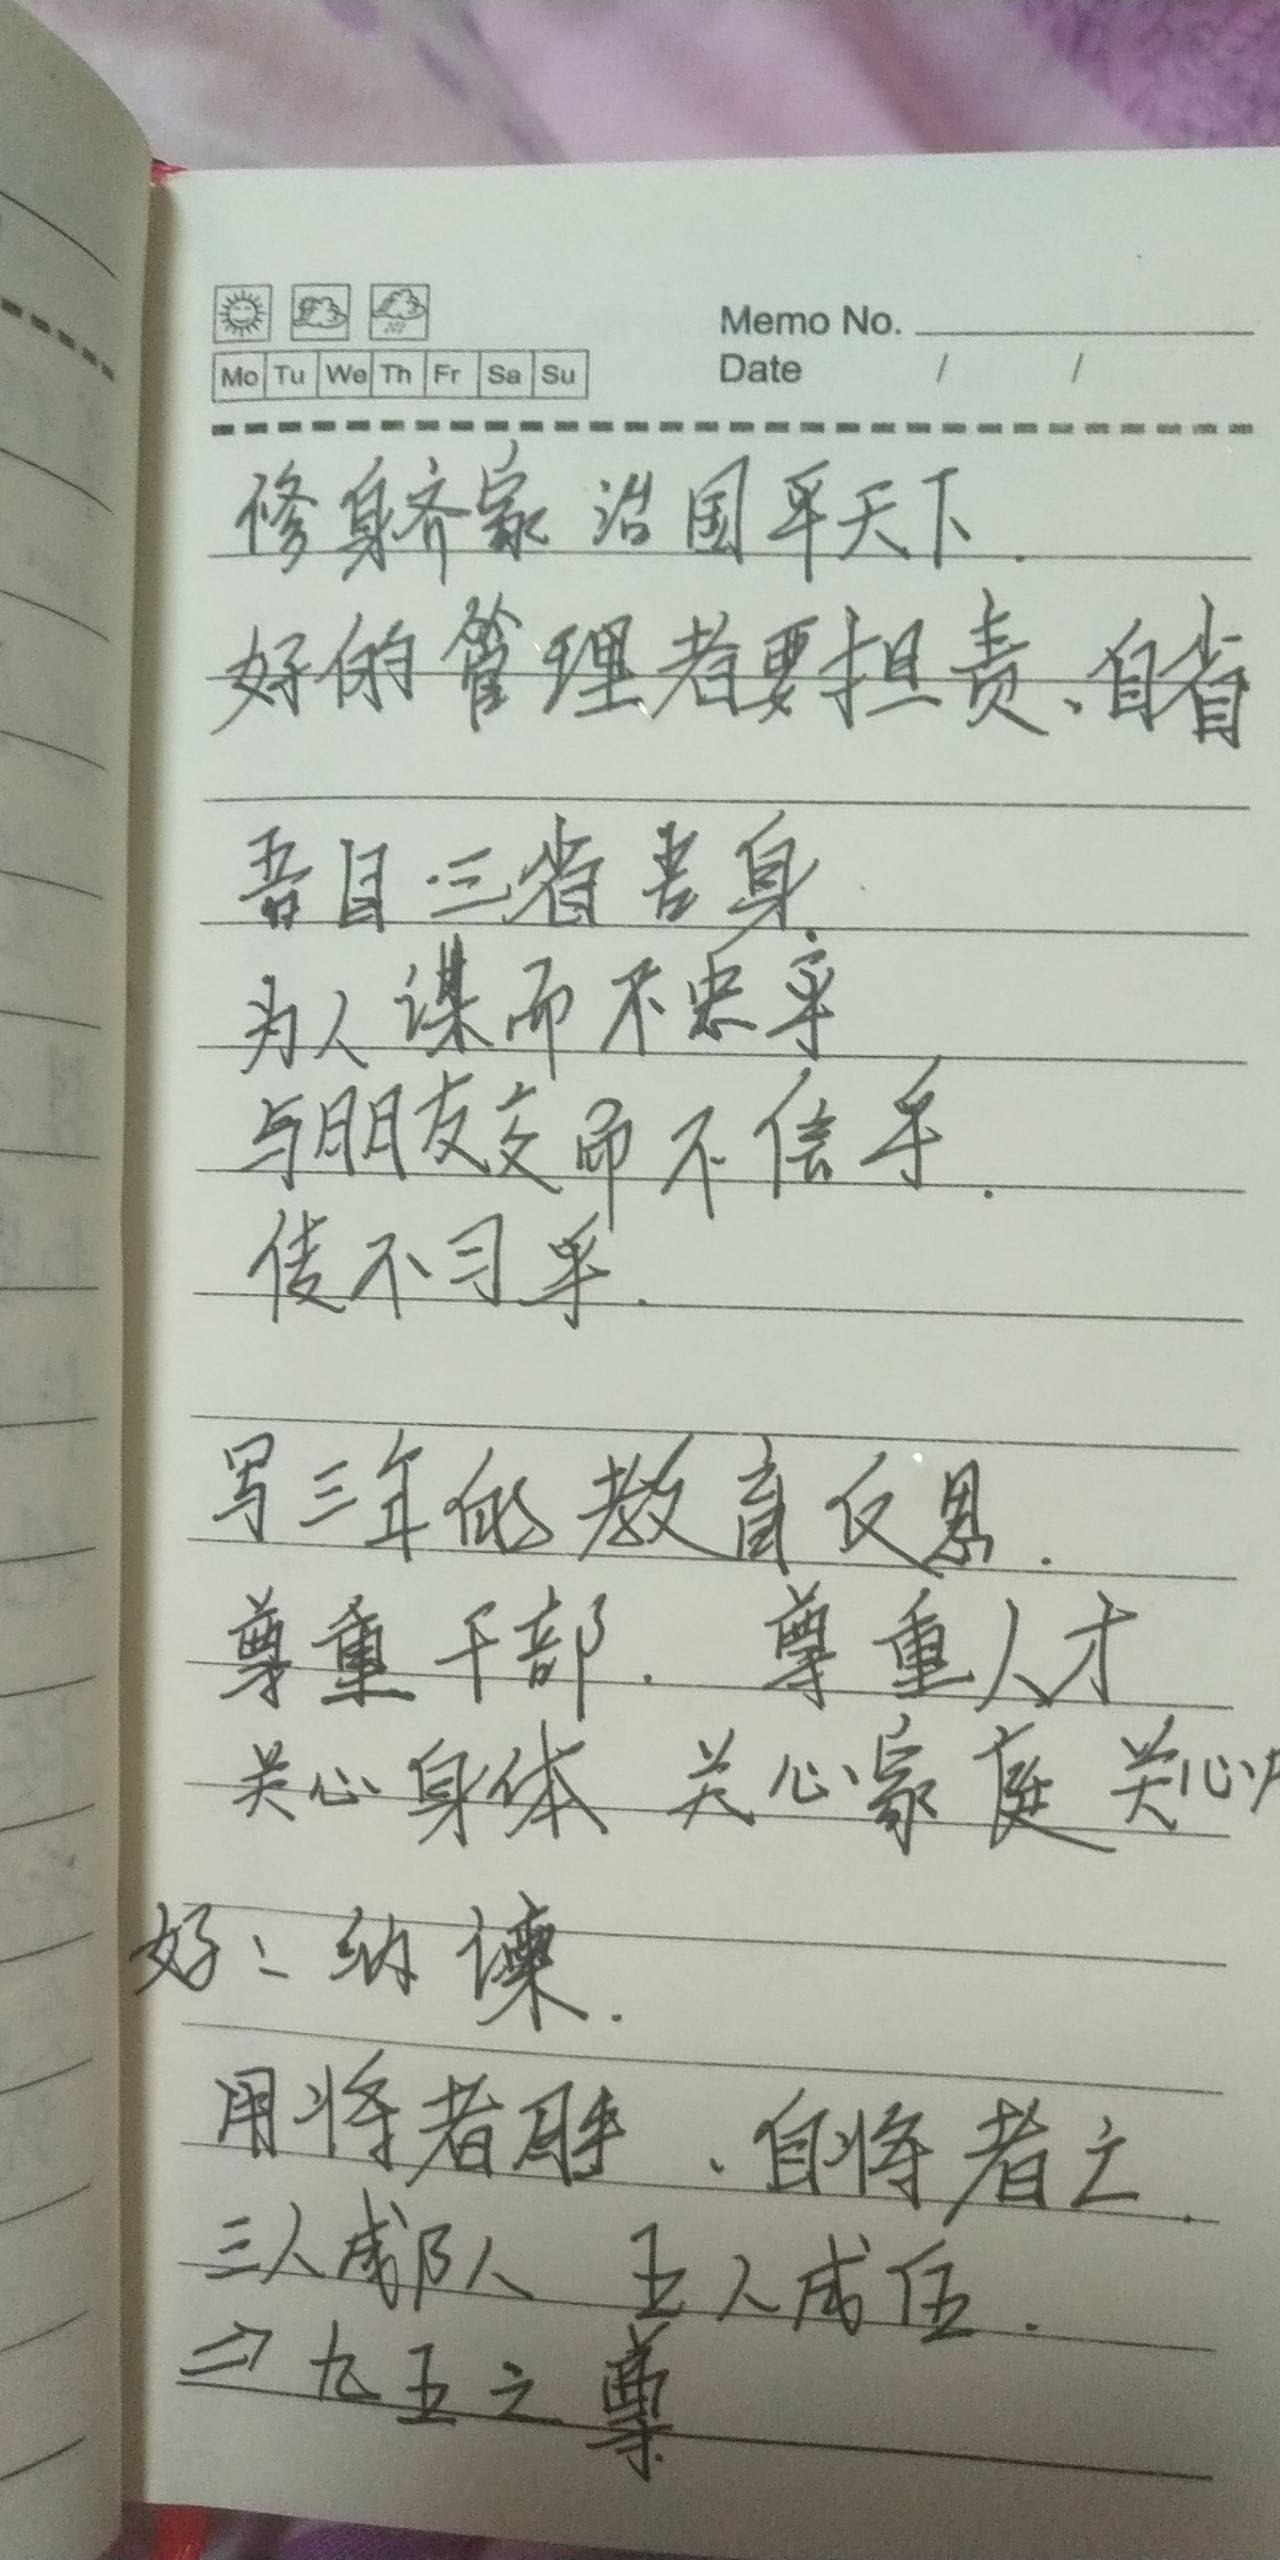 Memo No.
Mo Tu We Th Fr Sa Su
Date / /
修身齐家 治国平天下.
好的管理者要担责、自省
吾日三省吾身.
为人谋而不忠乎
与朋友交而不信乎.
传不习乎.
写三年的教育反思.
尊重干部. 尊重人才
关心身体 关心家庭 关心
好: 纳谏.
用将者胜、自将者亡.
三人成队 五人成伍.
⇒九五之尊